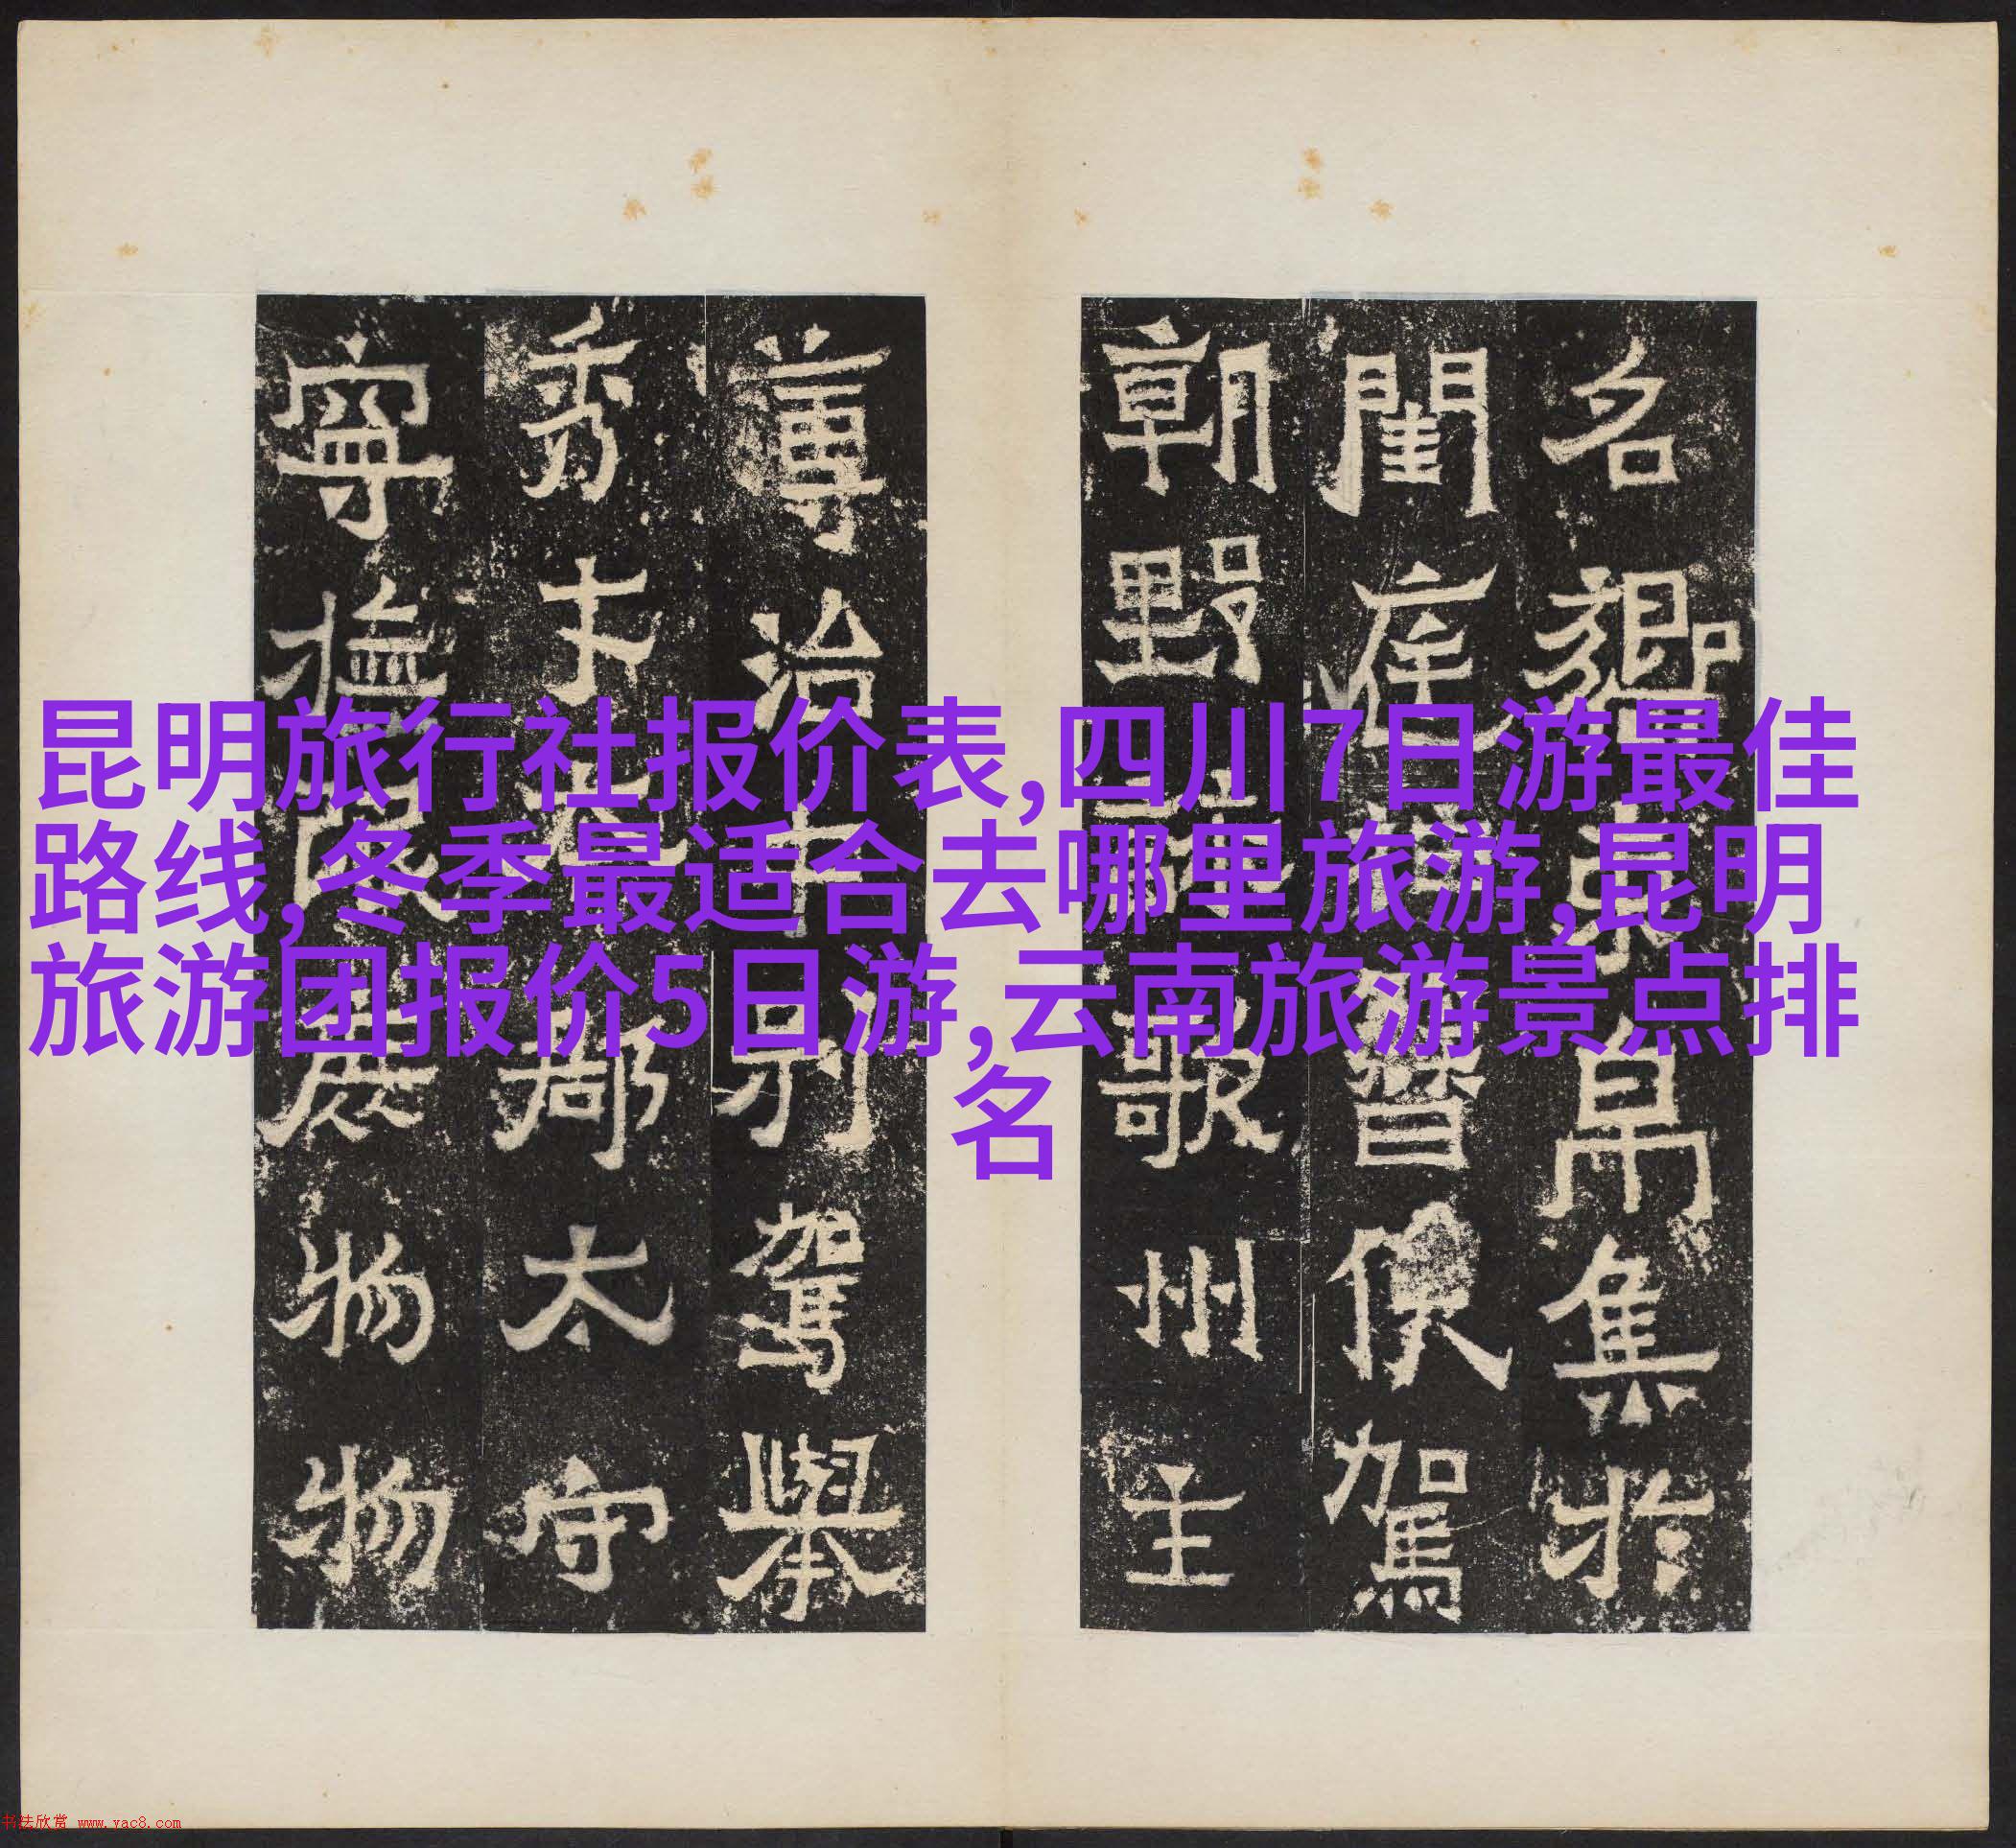 昆明旅行社报价表,四川7日游最佳
路线,冬季最适合去哪里旅游,昆明
旅游团报价5日游,云南旅游景点排
名
名卿
閨庭
朝野 歌州主
尊治 別駕舉
秀 太守
寧 物物
集於
督 駕
书法欣赏 www.yac8.com